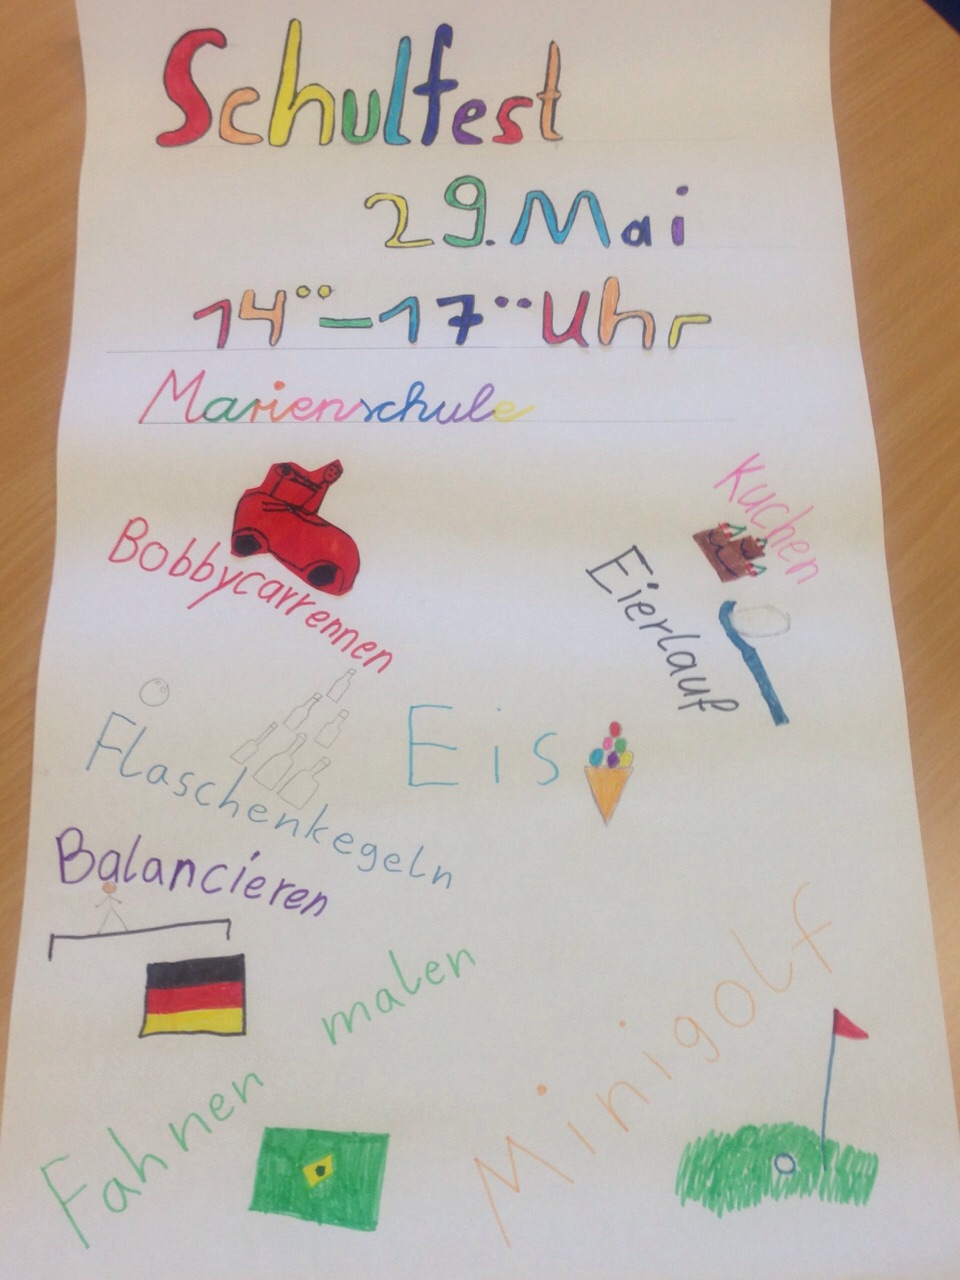 Schulfest
29. Mai
14°°-17°°Uhr
Marienschule
Bobbycarrennen
Kuchen
Eierlauf
Flaschenkegeln
Eis
Balancieren
Fahnen malen
Minigolf